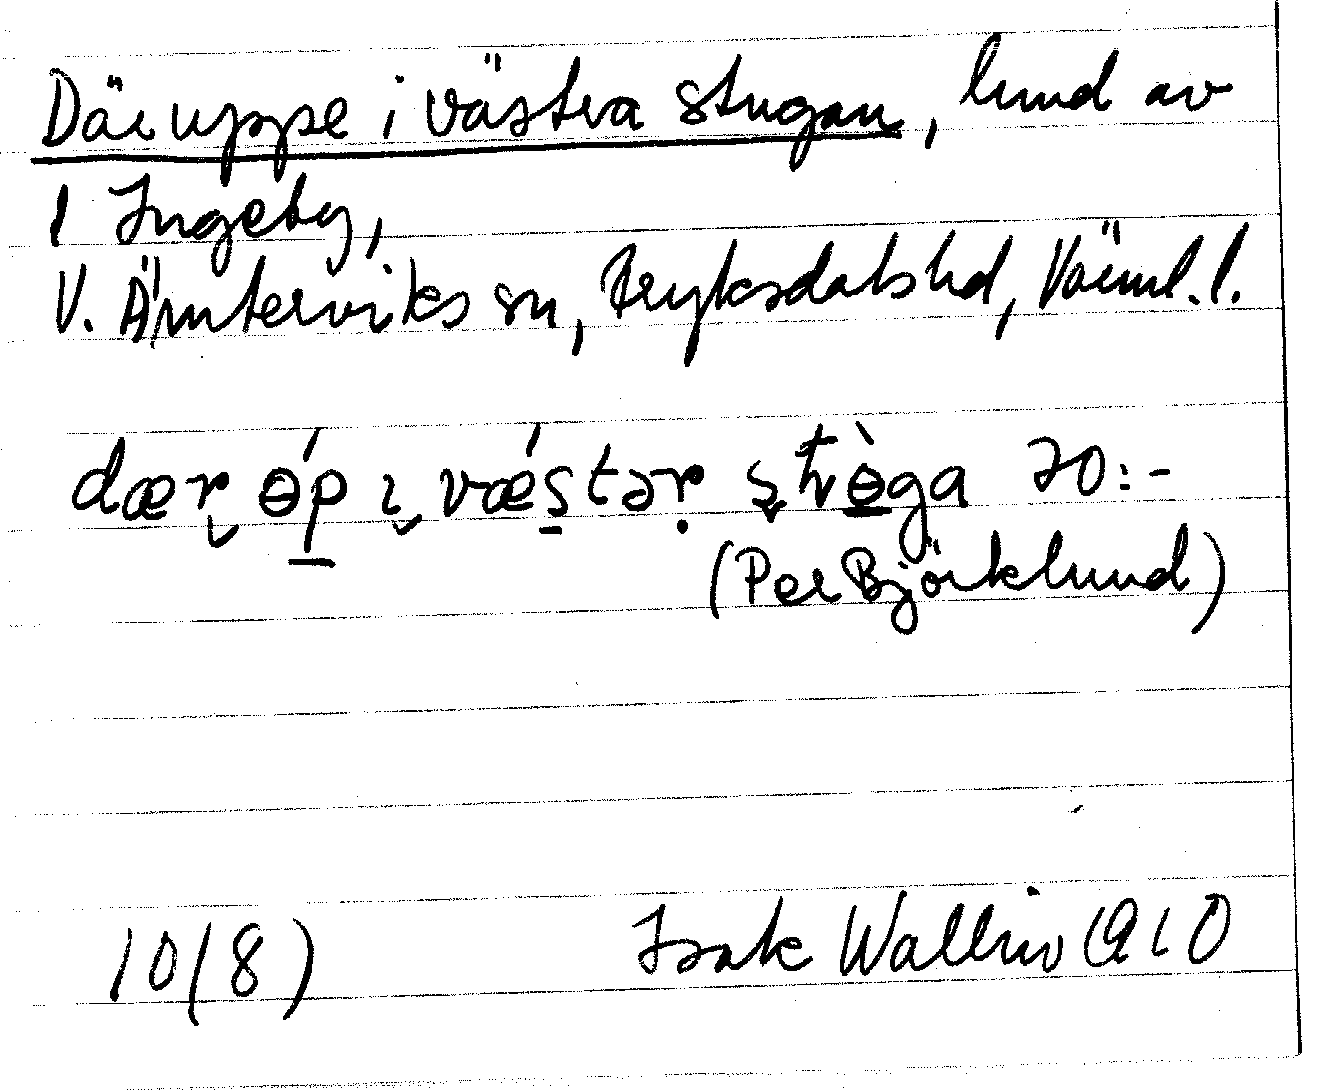 Däruppe i västra stugan, kund av
1 Ingeby,
V. Ämterviks sn, Fryksdals hd, Värml. l.
dær ɵ́p ı vǽstər stɵ̀ga 70:-
(Per Björklund)
10(8) Isak Wallin 1910